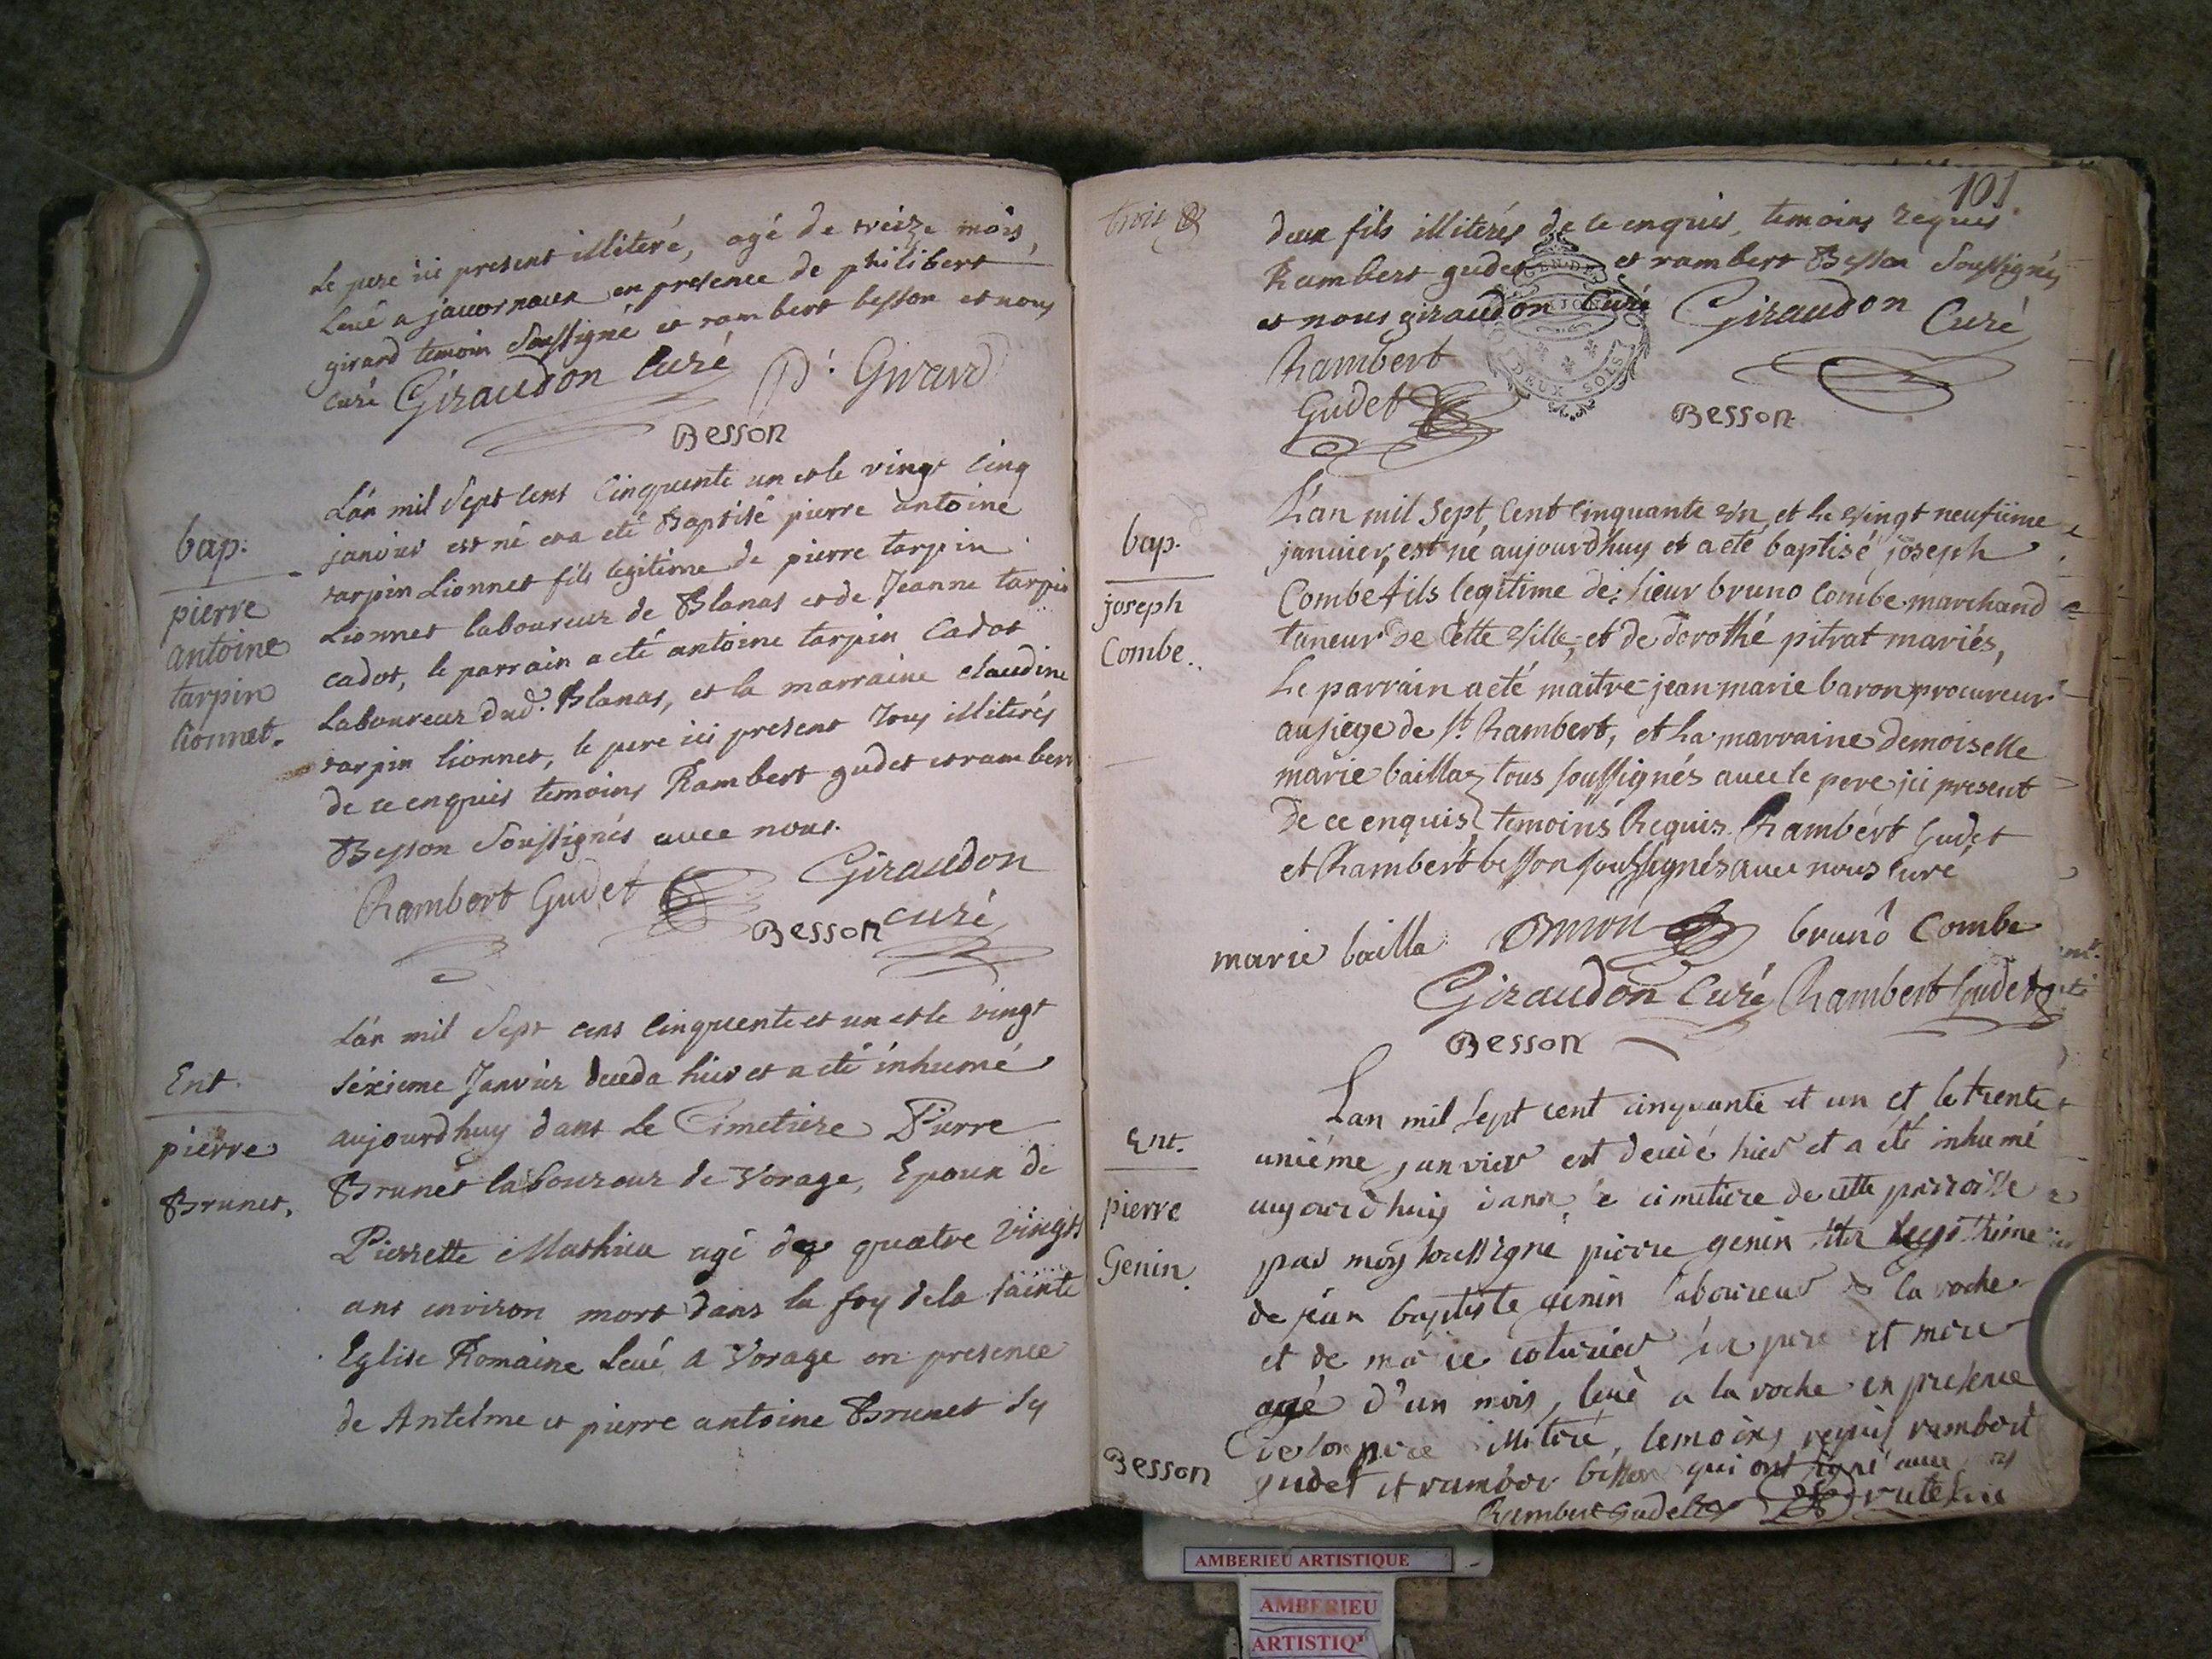 Le pere ici present illiteré, agé de treize mois,
Levé a javornoux en presence de philibert
girard temoin Soussigné et rambert besson et nous
curé Giraudon Curé P. Girard
Besson
bap.
pierre
antoine
tarpin
lionnet.
L'an mil Sept cent Cinquente un et le vingt cinq
janvier est né et a eté Baptisé pierre antoine
tarpin Lionnet fils legitime de pierre tarpin
Lionnet laboureur de Blanas et de Jeanne tarpin
cadot, le parrain a eté antoine tarpin Cadot
Laboureur dud. Blanas, et la marraine claudine
tarpin lionnet, le pere ici present Tous illiterés
de ce enquis temoins Rambert gudet et rambert
Besson Soussignés avec nous.
Rambert Gudet Giraudon
Besson curé
Ent.
pierre
Brunet.
L'an mil Sept cens Cinquente et un et le vingt
sixieme Janvier deceda hier et a eté inhumé
aujourdhuy dans Le Cimetiere Pierre
Brunet laboureur de Vorage, Epoux de
Pierrette Mathieu agé de quatre vingts
ans environ mort dans la foy de la sainte
Eglise Romaine Levé a Vorage en presence
de Antelme et pierre antoine Brunet Sy
101
deux fils illiterés de ce enquis, temoins requis
Rambert gudet et rambert Besson Soussignés
et nous giraudon Curé Giraudon Curé
GEN DE
DEUX SOLS
Rambert
Gudet
Besson
bap.
joseph
Combe.
L'an mil Sept Cent Cinquante Un, et le Vingt neufiime
janvier, est né aujourdhuy et a eté baptisé joseph
Combe fils legitime de sieur bruno Combe marchand
taneur de Cette Ville, et de dorothé pitrat mariés,
Le parrain a eté maitre jean marie baron procureur
au siege de st Rambert, et La marraine demoiselle
marie bailla, tous soussignés avec le pere ici present
De ce enquis, temoins Requis Rambért Gudet
et Rambert besson soussignés avec nous Curé
marie bailla bruno Combe
Giraudon Curé Rambert Gudet
Besson
Ent.
pierre
Genin.
L'an mil sept cent cinquante et un et le trente
uniéme janvier est decedé hier et a eté inhumé
aujourdhuy dans le cimetiere de cette parroisse
par moy soussigné pierre genin fils legithime
de jean baptiste genin laboureur de la roche
et de marie coturier ses pere et mere
agé d'un mois, levé a la roche en presence
de son pere illiteré, temoins requis rambert
gudet et rambert besson qui ont signé avec
Besson
Rambert Gudet
AMBERIEU ARTISTIQUE
AMBERIEU
ARTISTIQ